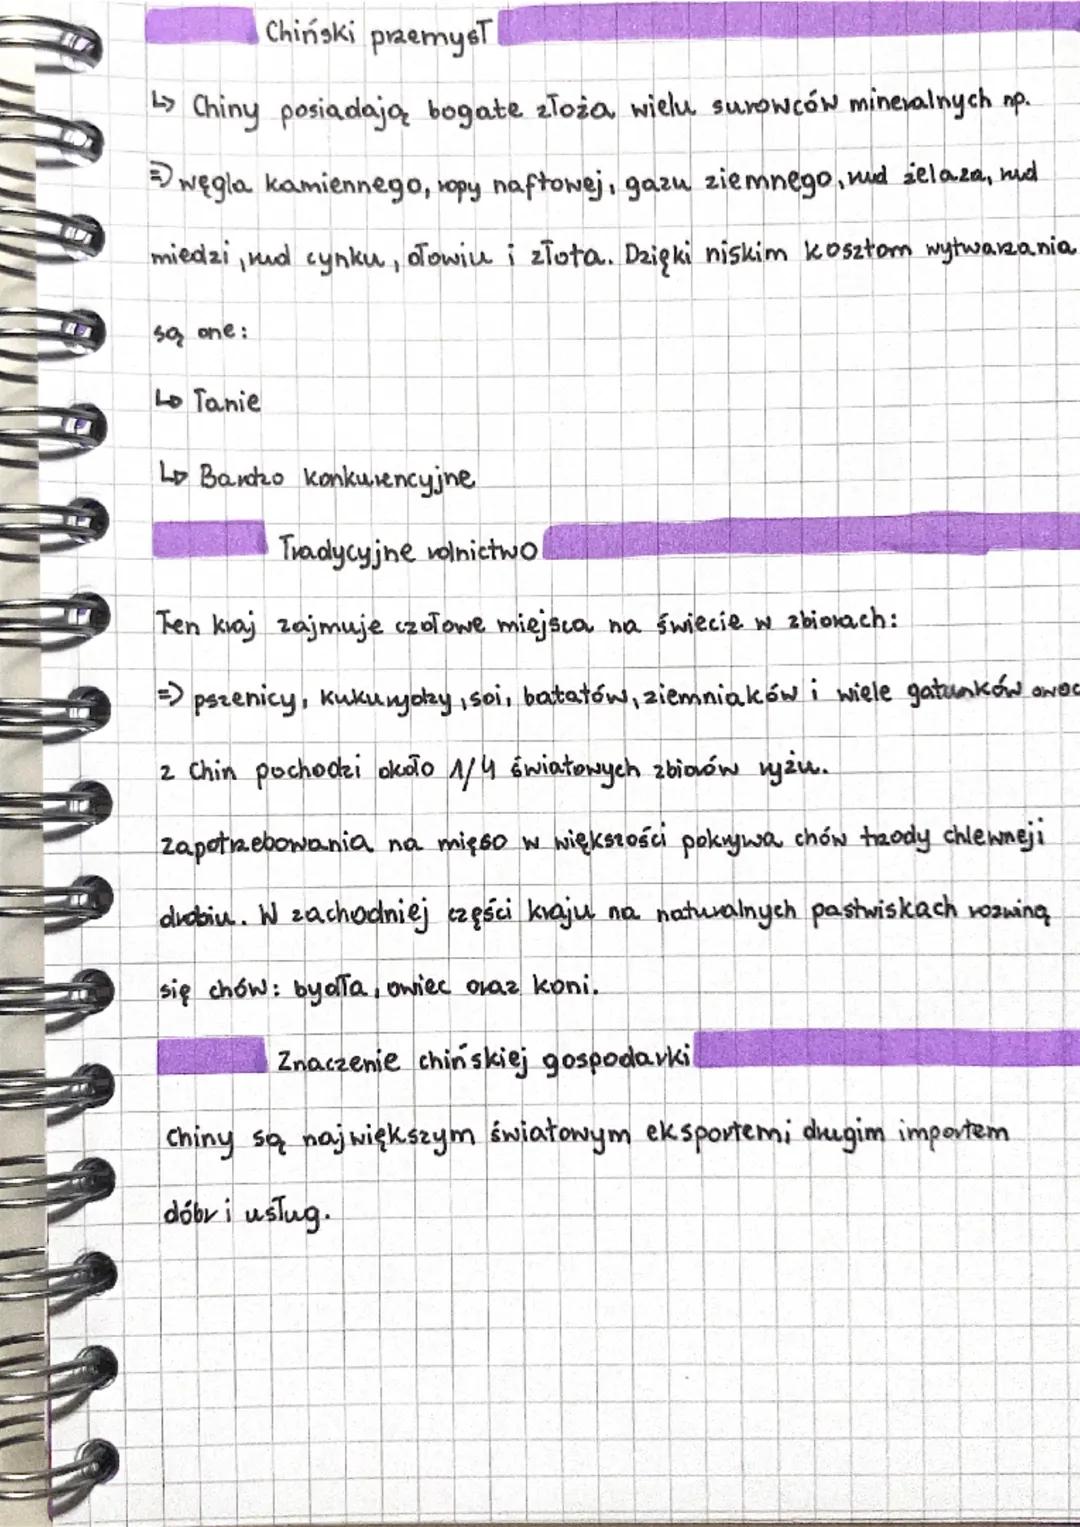 Chiński przemysł
↳ Chiny posiadają bogate złoża wielu surowców mineralnych np.
⇒ węgla kamiennego, ropy naftowej, gazu ziemnego, rud żelaza, rud
miedzi, rud cynku, ołowiu i złota. Dzięki niskim kosztom wytwarzania
są one:
↳ Tanie
↳ Bardzo konkurencyjne
Tradycyjne rolnictwo
Ten kraj zajmuje czołowe miejsca na świecie w zbiorach:
⇒ pszenicy, kukurydzy, soi, batatów, ziemniaków i wiele gatunków owoc
z Chin pochodzi około 1/4 światowych zbiorów ryżu.
zapotrzebowania na mięso w większości pokrywa chów trzody chlewnej i
drobiu. W zachodniej części kraju na naturalnych pastwiskach rozwiną
się chów: bydła, owiec oraz koni.
Znaczenie chińskiej gospodarki
Chiny są największym światowym eksportem i drugim importem
dóbr i usług.